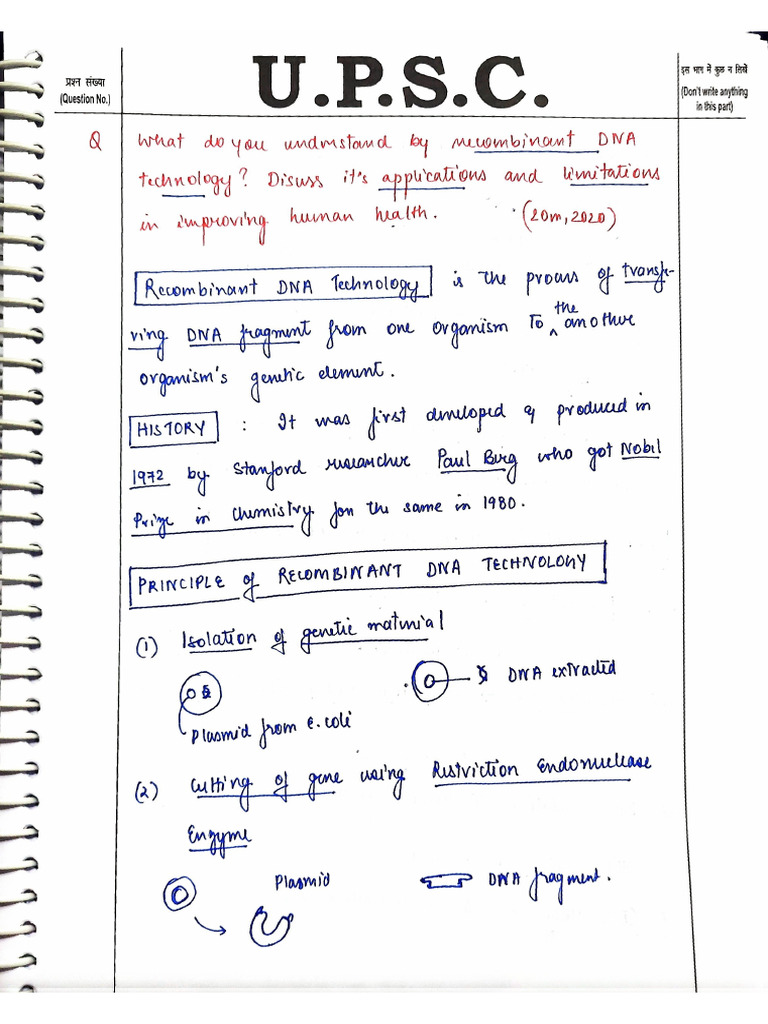 प्रश्न संख्या
(Question No.)
U.P.S.C.
इस भाग में कुछ न लिखें
(Don't write anything
in this part)
Q What do you understand by recombinant DNA
technology? Disuss it's applications and limitations
in improving human health. (20m, 2020)
Recombinant DNA Technology is the process of transfe-
rring DNA fragment from one organism to the another
organism's genetic element.
HISTORY : It was first developed & produced in
1972 by Stanford researcher Paul Berg who got Nobel
Prize in Chemistry for the same in 1980.
PRINCIPLE of RECOMBINANT DNA TECHNOLOGY
(1) Isolation of genetic material
DNA extracted
Plasmid from e.coli
(2) Cutting of gene using Restriction Endonuclease
Enzyme
Plasmid DNA fragment.